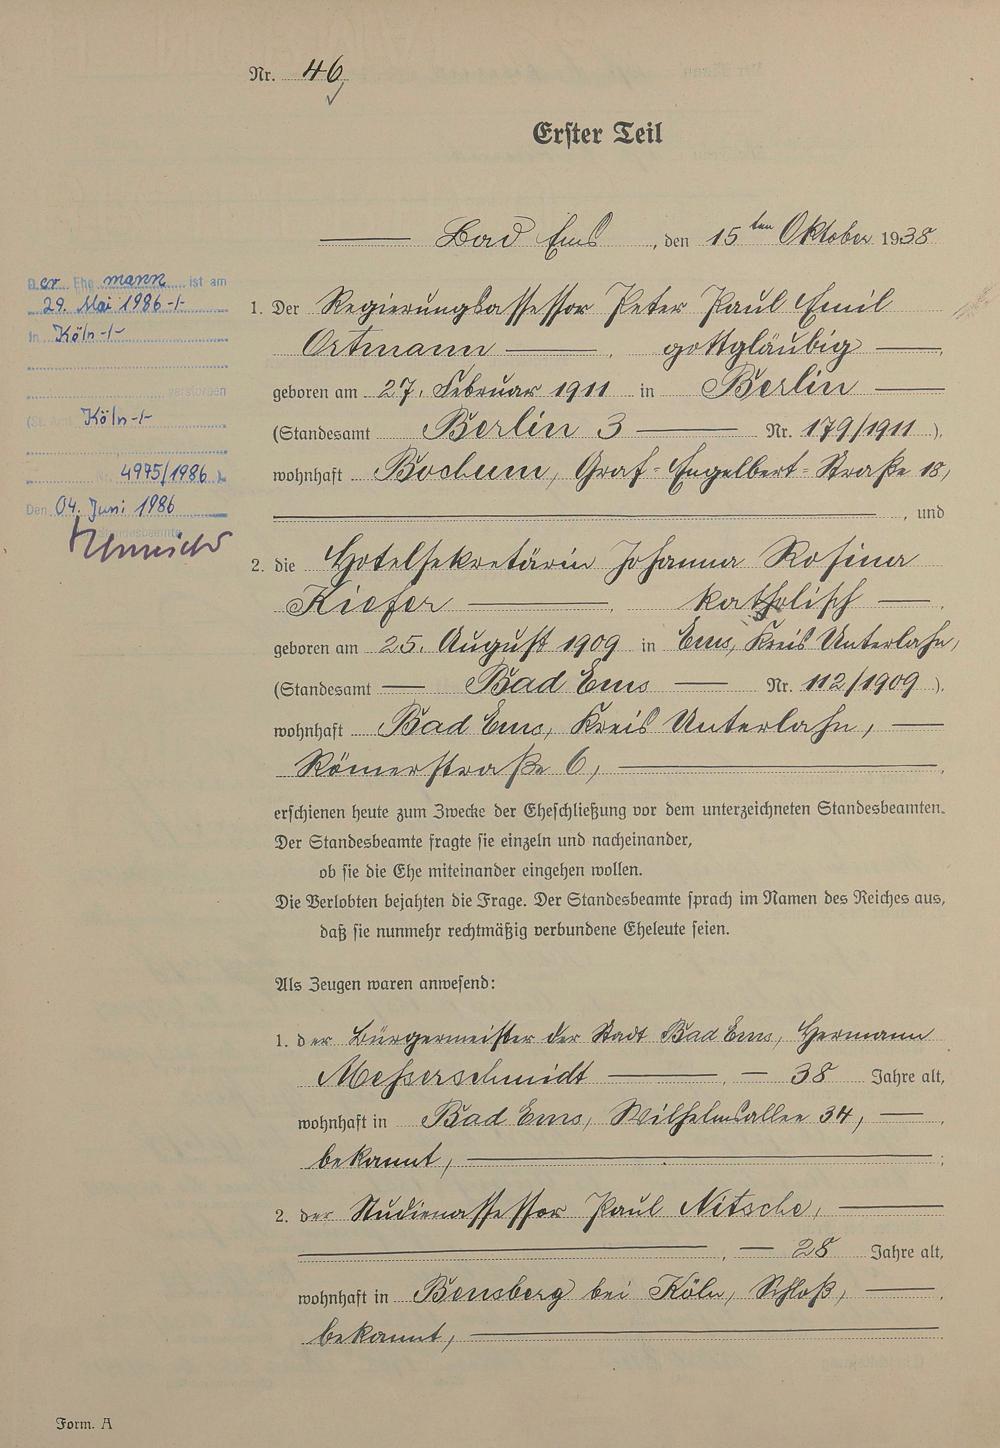 Nr. 46
Erster Teil
Bad Ems, den 15ten Oktober 1938
Der Ehemann ist am
29. Mai 1986 -/-
in Köln -/-
verstorben
(St. Amt Köln -/-
Nr. 4975/1986)
Den 04. Juni 1986
Standesbeamte
1. Der Regierungsassessor Peter Paul Emil
Ortmann, gottgläubig
geboren am 27. Februar 1911 in Berlin
(Standesamt Berlin 3 Nr. 179/1911),
wohnhaft Bochum, Graf-Engelbert-Straße 18,
, und
2. die Hotelsekretärin Johanna Rosina
Kiefer, katholisch,
geboren am 25. August 1909 in Ems, Kreis Unterlahn,
(Standesamt Bad Ems Nr. 112/1909),
wohnhaft Bad Ems, Kreis Unterlahn,
Römerstraße 6,
erschienen heute zum Zwecke der Eheschließung vor dem unterzeichneten Standesbeamten.
Der Standesbeamte fragte sie einzeln und nacheinander,
ob sie die Ehe miteinander eingehen wollen.
Die Verlobten bejahten die Frage. Der Standesbeamte sprach im Namen des Reiches aus,
daß sie nunmehr rechtmäßig verbundene Eheleute seien.
Als Zeugen waren anwesend:
1. der Bürgermeister der Stadt Bad Ems, Hermann
Messerschmidt, 38 Jahre alt,
wohnhaft in Bad Ems, Wilhelmsallee 34,
bekannt, ;
2. der Studienassessor Paul Nitsche,
, 28 Jahre alt,
wohnhaft in Bensberg bei Köln, Schloß,
bekannt,
Form. A